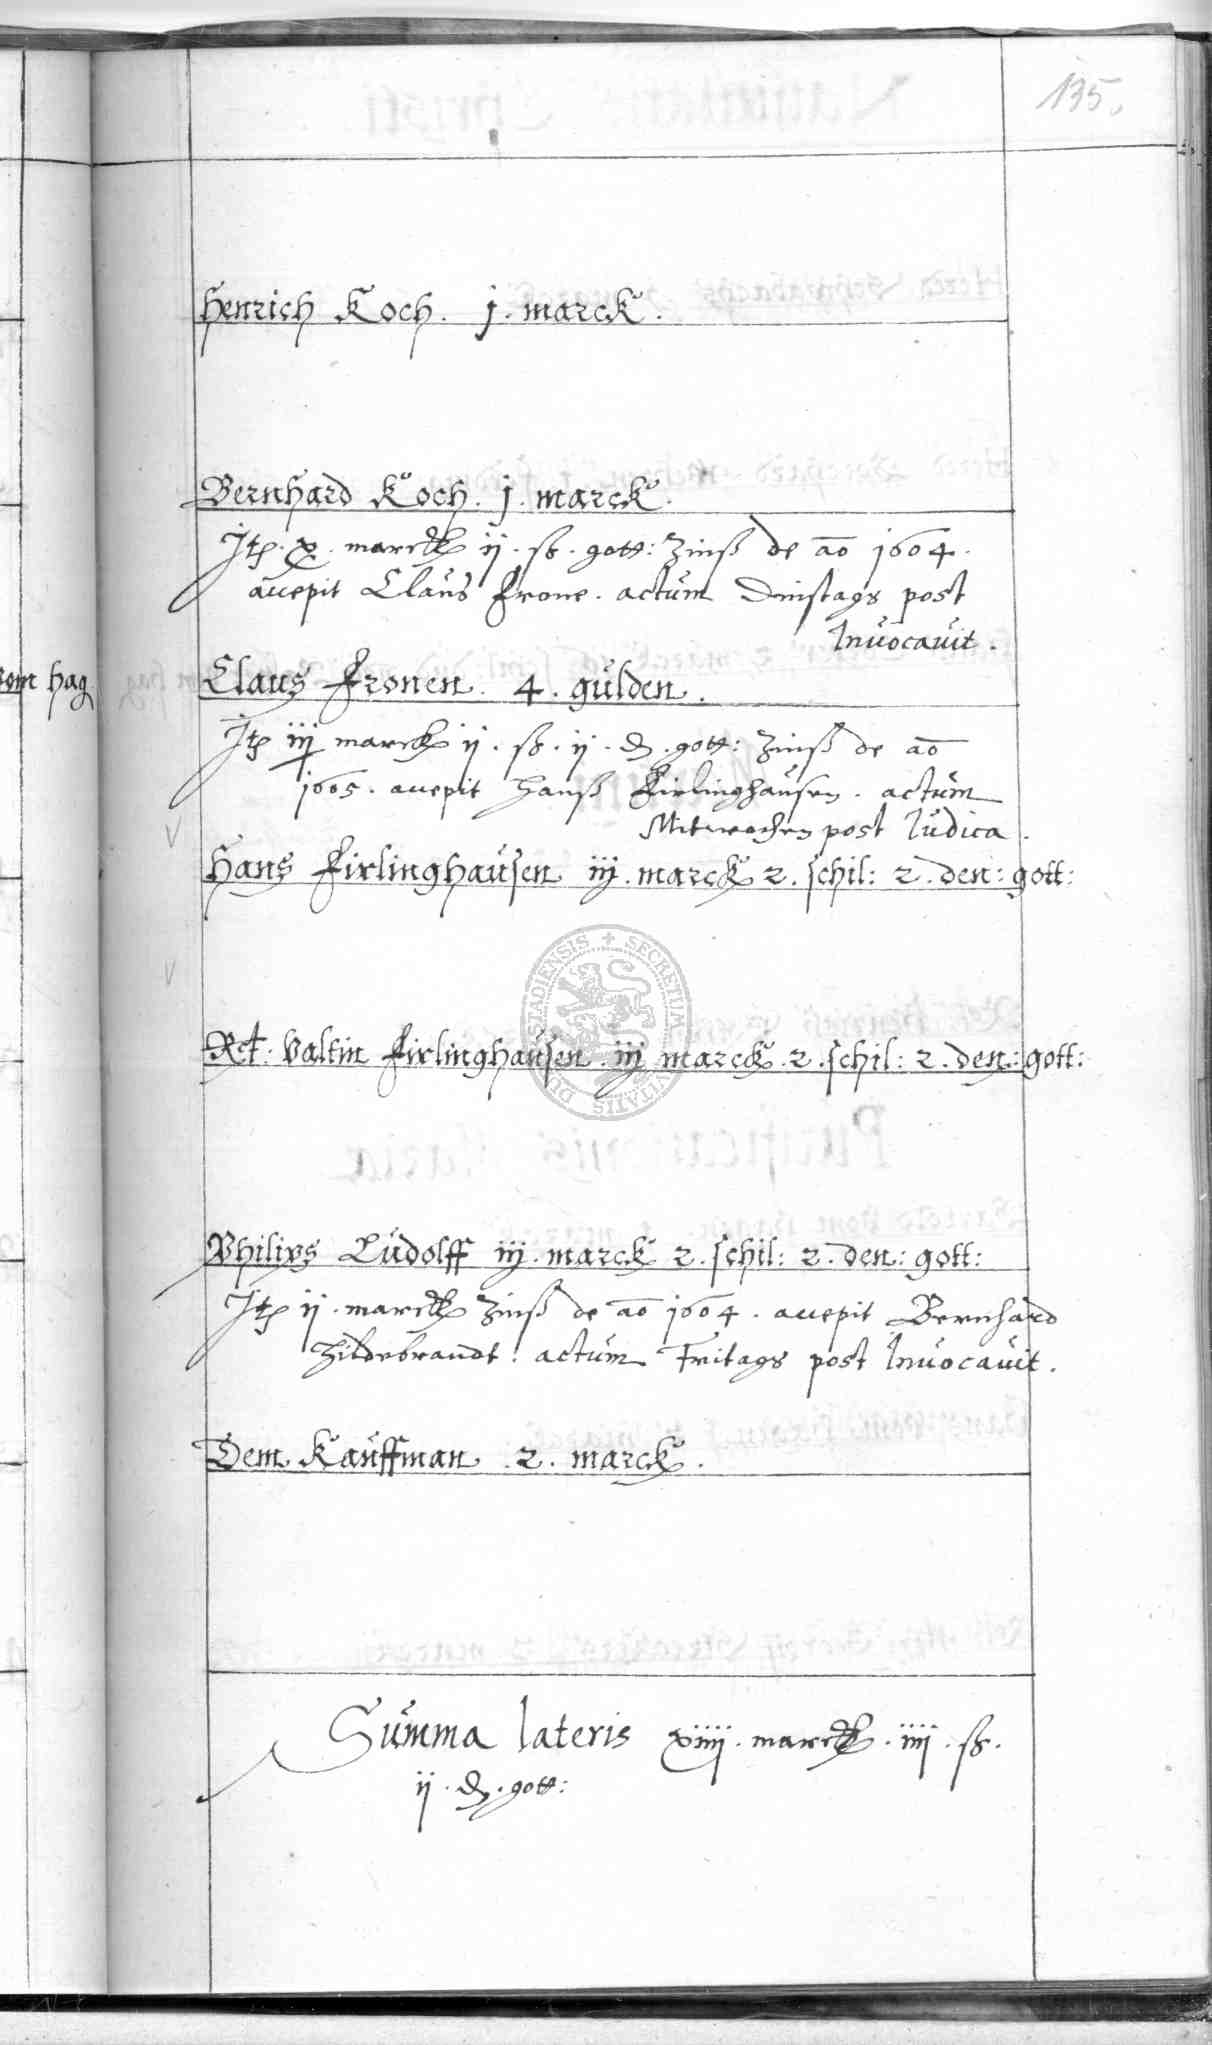 135.
Henrich Koch. j. marck.
Bernhard Koch. j. marck.
Jtem x. marck ij. ß. gott: Zinß de ao 1604.
accepit Claus Frone. actum Dinstags post
Invocavit.
vom hag
Claus Fronen. 4. gulden.
Jtem iij marck ij. ß. ij. d. gott: Zinß de ao
1605. accepit Hanß Firlinghausen. actum
Mitwochen post Iudica.
Hans Firlinghausen iij. marck 2. schil: 2. den: gott:
Rct: Valtin Firlinghausen. iij marck. 2. schil: 2. den: gott:
Philips Ludolff iij. marck 2. schil: 2. den: gott:
Jtem ij. marck Zinß de ao 1604. accepit Bernhard
Hildebrandt. actum Fritags post Invocavit.
Dem Kauffman. 2. marck.
Summa lateris xiiij. marck. iiij. ß.
ij. d. gott:
SECRETUM CIVITATIS DUDERSTADIENSIS